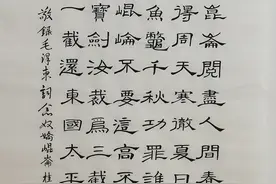 崑崙閱盡人間春
得周天寒徹夏日
魚鼈千秋功罪誰
崐崘不要這高不
寶劍汝裁爲三截
一截還東國太平
敬錄毛澤東詞念奴嬌崐崘桂